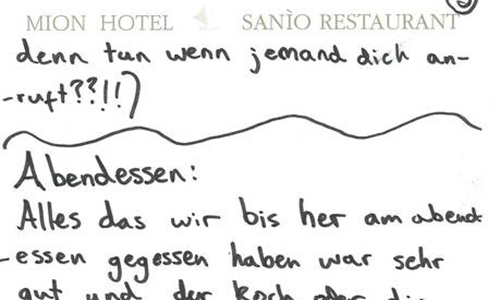 MION HOTEL SANÌO RESTAURANT
denn tun wenn jemand dich an-
-ruft??!!)
Abendessen:
Alles das wir bis her am abend
-essen gegessen haben war sehr
gut und der Koch oder die